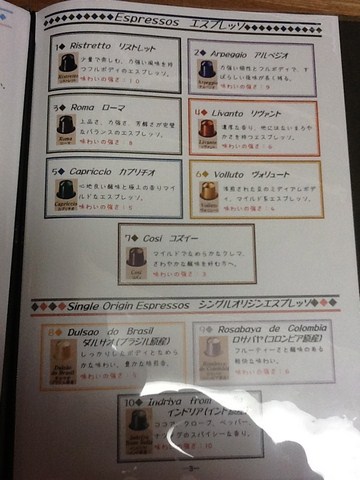 Espressos エスプレッソ
1◆ Ristretto リストレット
少量で楽しむ、力強い風味を持つ
フルボディのエスプレッソ。
味わいの強さ: 10
2◆ Arpeggio アルペジオ
力強い個性とフルボディで、す
ばらしい後味が長く残る。
味わいの強さ: 9
3◆ Roma ローマ
上品さ、力強さ、芳醇さが完璧
なバランスのエスプレッソ。
味わいの強さ: 8
4◆ Livanto リヴァント
濃厚な香り、他にはないまろや
かさを持つエスプレッソ。
味わいの強さ: 6
5◆ Capriccio カプリチオ
心地良い酸味と極上の香りマイ
ルドなエスプレッソ。
味わいの強さ: 5
6◆ Volluto ヴォリュート
味わいの強さ: 4
7◆ Cosi コズィー
マイルドでなめらかなクレマ、
さわやかな酸味を好む方へ。
味わいの強さ: 3
Single Origin Espressos シングルオリジンエスプレッソ
8◆ Dulsao do Brasil
ダルサオ(ブラジル原産)
しっかりしたボディとなめら
かな味わい。
9◆ Rosabaya de Colombia
ロサバヤ(コロンビア原産)
フルーティーさと酸味のある
軽快な味わい。
味わいの強さ: 6
10◆ Indriya from
インドリア(インド原産)
ココア、クローブ、ペッパー、
のスパイシーな香り。
味わいの強さ: 10